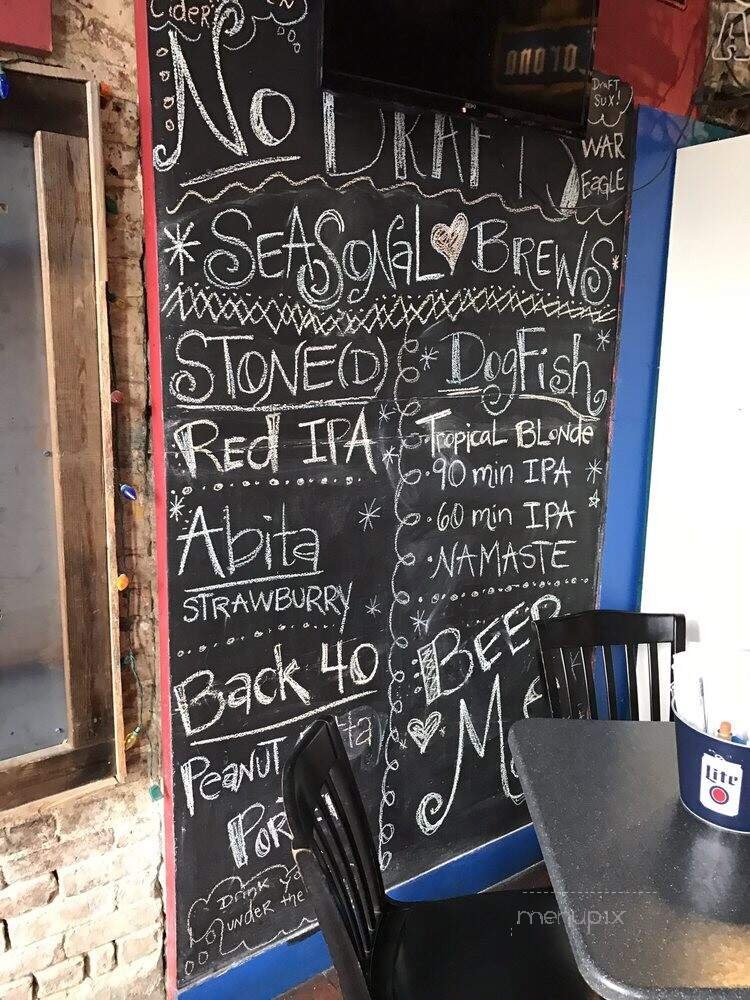 Cider
No DRAFTS
DraFT
SUX!
WAR
EaGLE
SEASONaL BREWS
STONE(D)
Red IPA
Abita
STRAWBURRY
Back 40
PEANUT
POR
Drink
UNDER the
DogFish
Tropical BLonde
90 min IPA
60 min IPA
NAMASTE
BEER
M
Lite
menupix